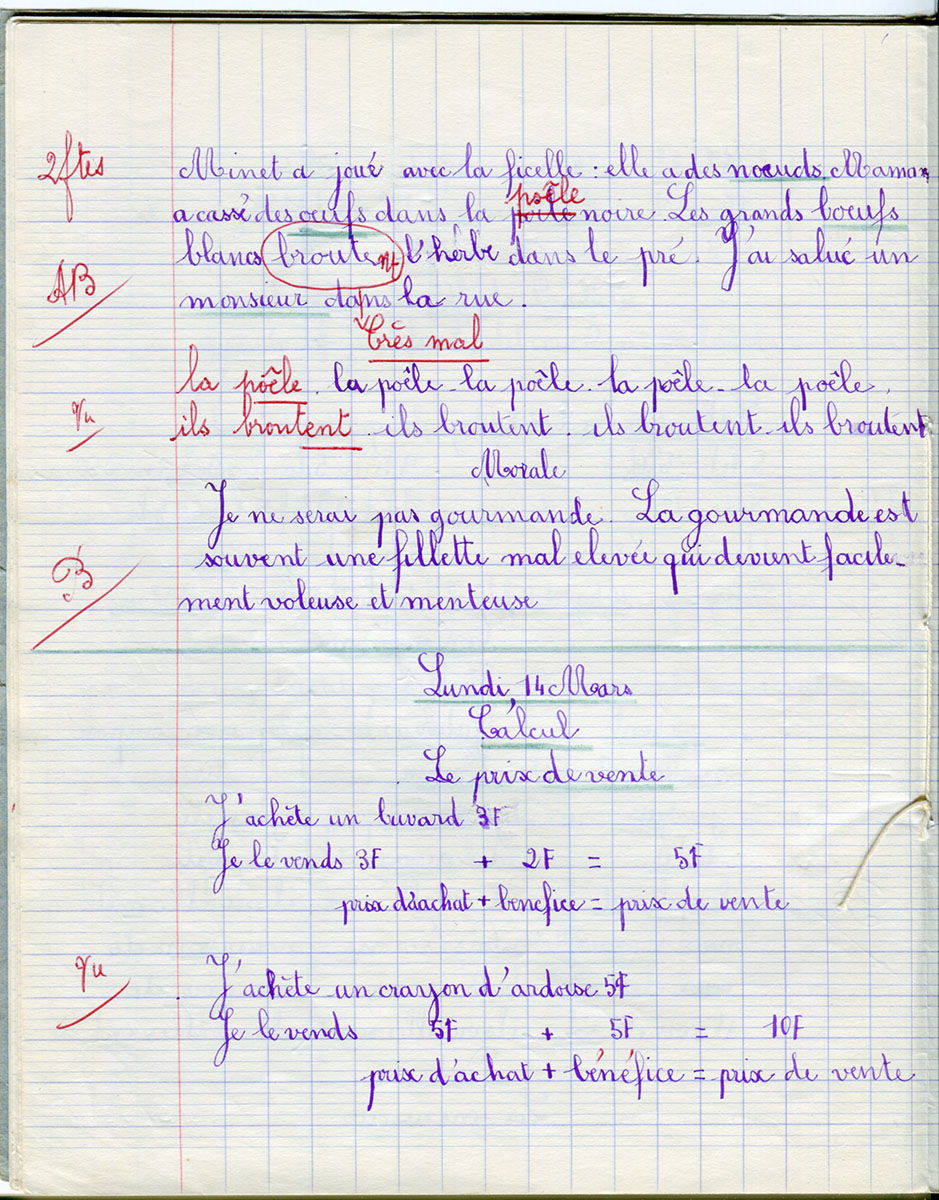 2 ftes
Minet a joué avec la ficelle : elle a des noeuds. Maman
poêle
a cassé des oeufs dans la noire. Les grands boeufs
blancs broutent l'herbe dans le pré. J'ai salué un
AB
monsieur dans la rue.
Très mal
la poêle. la poêle. la poêle. la poêle. la poêle.
Vu
ils broutent. ils broutent. ils broutent. ils broutent
Morale
Je ne serai pas gourmande. La gourmande est
souvent une fillette mal elevée qui devient facile-
B
ment voleuse et menteuse
Lundi, 14 Mars
Calcul
Le prix de vente
J'achète un buvard 3F
Je le vends 3F + 2F = 5F
prix d'achat + benefice = prix de vente
Vu
J'achète un crayon d'ardoise 5F
Je le vends 5F + 5F = 10F
prix d'achat + bénéfice = prix de vente